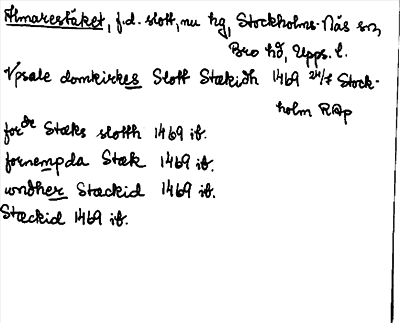 Almarestäket, f.d. slott, nu hg, Stockholms-Näs sn,
Bro hd, Upps. l.
Vpsale domkirkes Slott Stækidh 1469 24/7 Stock-
holm RAp
for de Stæks slotth 1469 ib.
fornempda Stæk 1469 ib.
wndher Stæckid 1469 ib.
Stæckid 1469 ib.